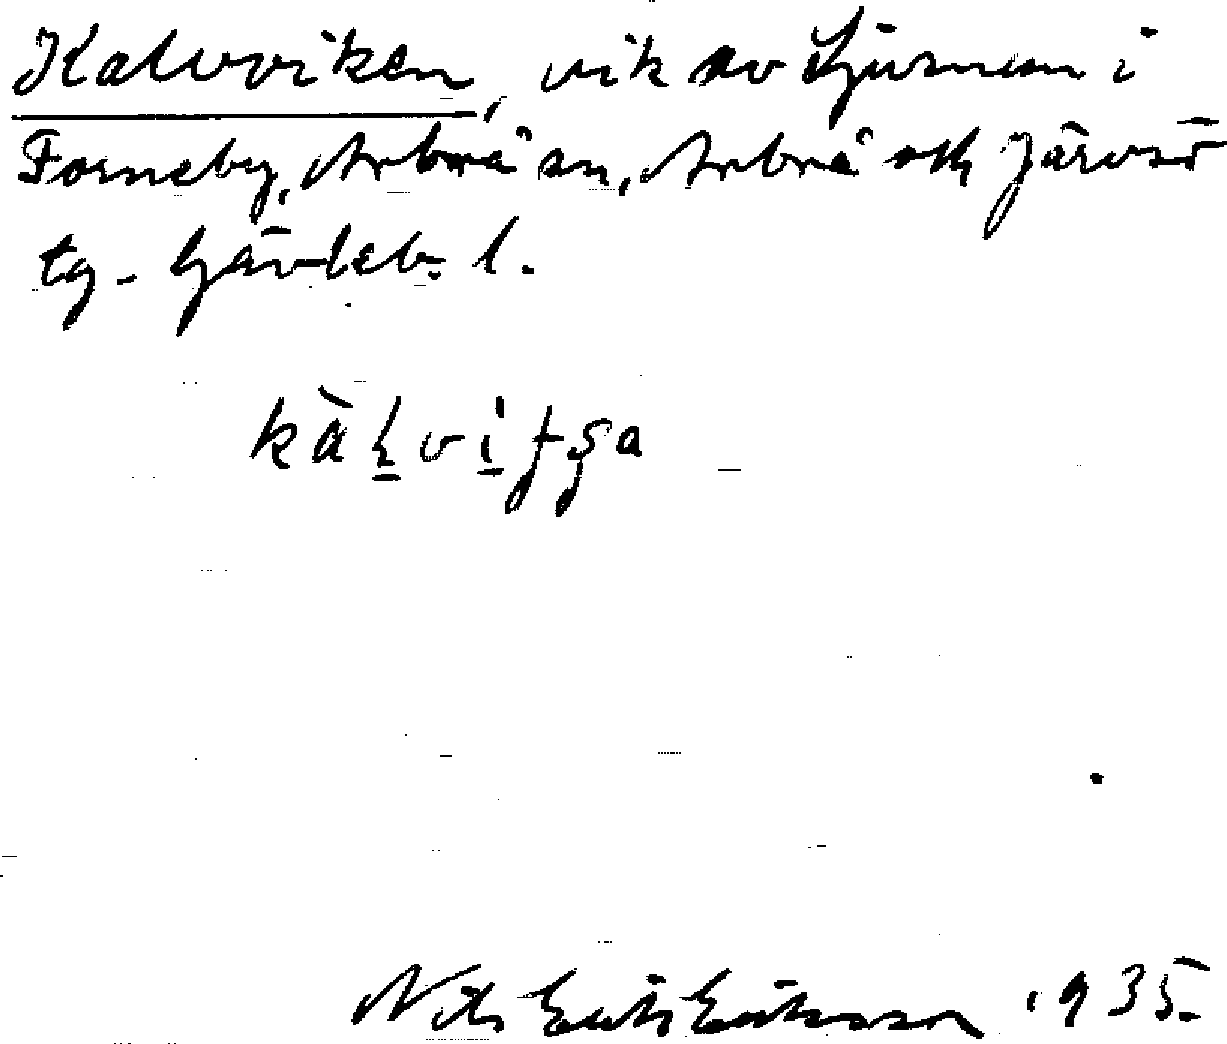 Kalvviken, vik av Ljusnan i
Forneby, Arbrå sn, Arbrå och Järvsö
tg. Gävleb. l.
Nils Erik Eriksson 1935.